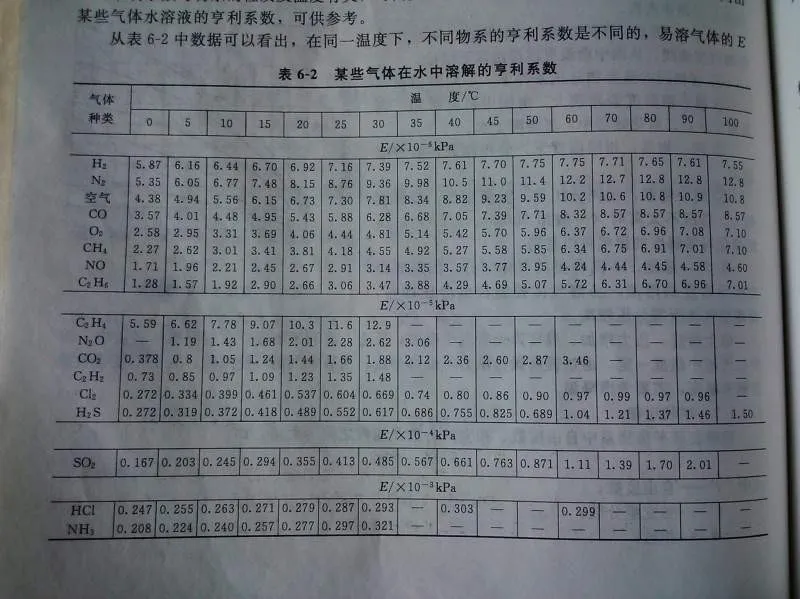 某些气体水溶液的亨利系数，可供参考。
从表 6-2 中数据可以看出，在同一温度下，不同物系的亨利系数是不同的，易溶气体的 E
表 6-2 某些气体在水中溶解的亨利系数
气体种类 温 度/℃
0 5 10 15 20 25 30 35 40 45 50 60 70 80 90 100
E/×10⁻⁶kPa
H₂ 5.87 6.16 6.44 6.70 6.92 7.16 7.39 7.52 7.61 7.70 7.75 7.75 7.71 7.65 7.61 7.55
N₂ 5.35 6.05 6.77 7.48 8.15 8.76 9.36 9.98 10.5 11.0 11.4 12.2 12.7 12.8 12.8 12.8
空气 4.38 4.94 5.56 6.15 6.73 7.30 7.81 8.34 8.82 9.23 9.59 10.2 10.6 10.8 10.9 10.8
CO 3.57 4.01 4.48 4.95 5.43 5.88 6.28 6.68 7.05 7.39 7.71 8.32 8.57 8.57 8.57 8.57
O₂ 2.58 2.95 3.31 3.69 4.06 4.44 4.81 5.14 5.42 5.70 5.96 6.37 6.72 6.96 7.08 7.10
CH₄ 2.27 2.62 3.01 3.41 3.81 4.18 4.55 4.92 5.27 5.58 5.85 6.34 6.75 6.91 7.01 7.10
NO 1.71 1.96 2.21 2.45 2.67 2.91 3.14 3.35 3.57 3.77 3.95 4.24 4.44 4.45 4.58 4.60
C₂H₆ 1.28 1.57 1.92 2.90 2.66 3.06 3.47 3.88 4.29 4.69 5.07 5.72 6.31 6.70 6.96 7.01
E/×10⁻⁵kPa
C₂H₄ 5.59 6.62 7.78 9.07 10.3 11.6 12.9 — — — — — — — — —
N₂O — 1.19 1.43 1.68 2.01 2.28 2.62 3.06 — — — — — — — —
CO₂ 0.378 0.8 1.05 1.24 1.44 1.66 1.88 2.12 2.36 2.60 2.87 3.46 — — — —
C₂H₂ 0.73 0.85 0.97 1.09 1.23 1.35 1.48 — — — — — — — — —
Cl₂ 0.272 0.334 0.399 0.461 0.537 0.604 0.669 0.74 0.80 0.86 0.90 0.97 0.99 0.97 0.96 —
H₂S 0.272 0.319 0.372 0.418 0.489 0.552 0.617 0.686 0.755 0.825 0.689 1.04 1.21 1.37 1.46 1.50
E/×10⁻⁴kPa
SO₂ 0.167 0.203 0.245 0.294 0.355 0.413 0.485 0.567 0.661 0.763 0.871 1.11 1.39 1.70 2.01 —
E/×10⁻³kPa
HCl 0.247 0.255 0.263 0.271 0.279 0.287 0.293 — 0.303 — — 0.299 — — — —
NH₃ 0.208 0.224 0.240 0.257 0.277 0.297 0.321 — — — — — — — — —